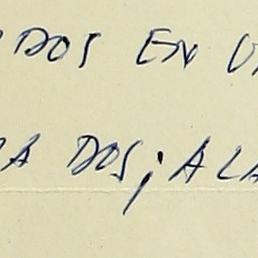 DOS EN
DOS; A LA